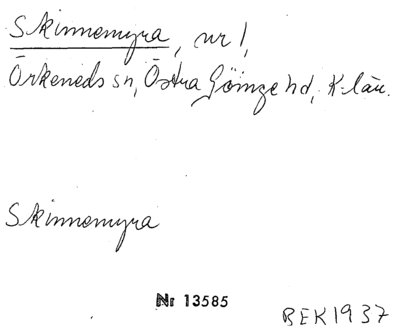 Skinnemyra, nr 1,
Örkeneds sn, Östra Göinge hd, K-län.
Skinnemyra
Nr 13585
BEK 1937